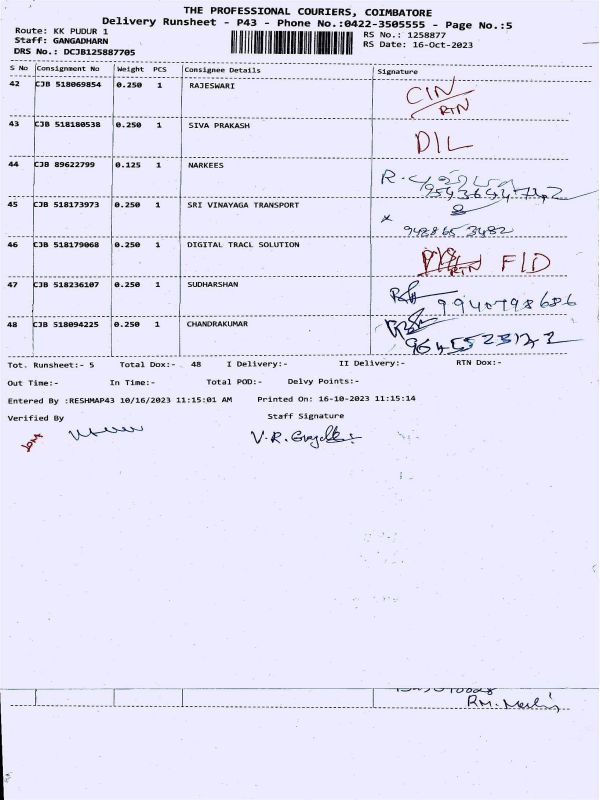 THE PROFESSIONAL COURIERS, COIMBATORE
Delivery Runsheet - P43 - Phone No.:0422-3505555 - Page No.:5
Route: KK PUDUR 1
RS No.: 1258877
Staff: GANGADHARN
RS Date: 16-Oct-2023
DRS No.: DCJB125887705
S No Consignment No Weight PCS Consignee Details Signature
42 CJB 518069854 0.250 1 RAJESWARI CIN RTN
43 CJB 518180538 0.250 1 SIVA PRAKASH DIL
44 CJB 89622799 0.125 1 NARKEES R.
45 CJB 518173973 0.250 1 SRI VINAYAGA TRANSPORT
9488653482
46 CJB 518179068 0.250 1 DIGITAL TRACL SOLUTION RTN FID
47 CJB 518236107 0.250 1 SUDHARSHAN 9940798686
48 CJB 518094225 0.250 1 CHANDRAKUMAR
Tot. Runsheet:- 5 Total Dox:- 48 I Delivery:- II Delivery:- RTN Dox:-
Out Time:- In Time:- Total POD:- Delvy Points:-
Entered By :RESHMAP43 10/16/2023 11:15:01 AM Printed On: 16-10-2023 11:15:14
Verified By Staff Signature
V.R.
RM.